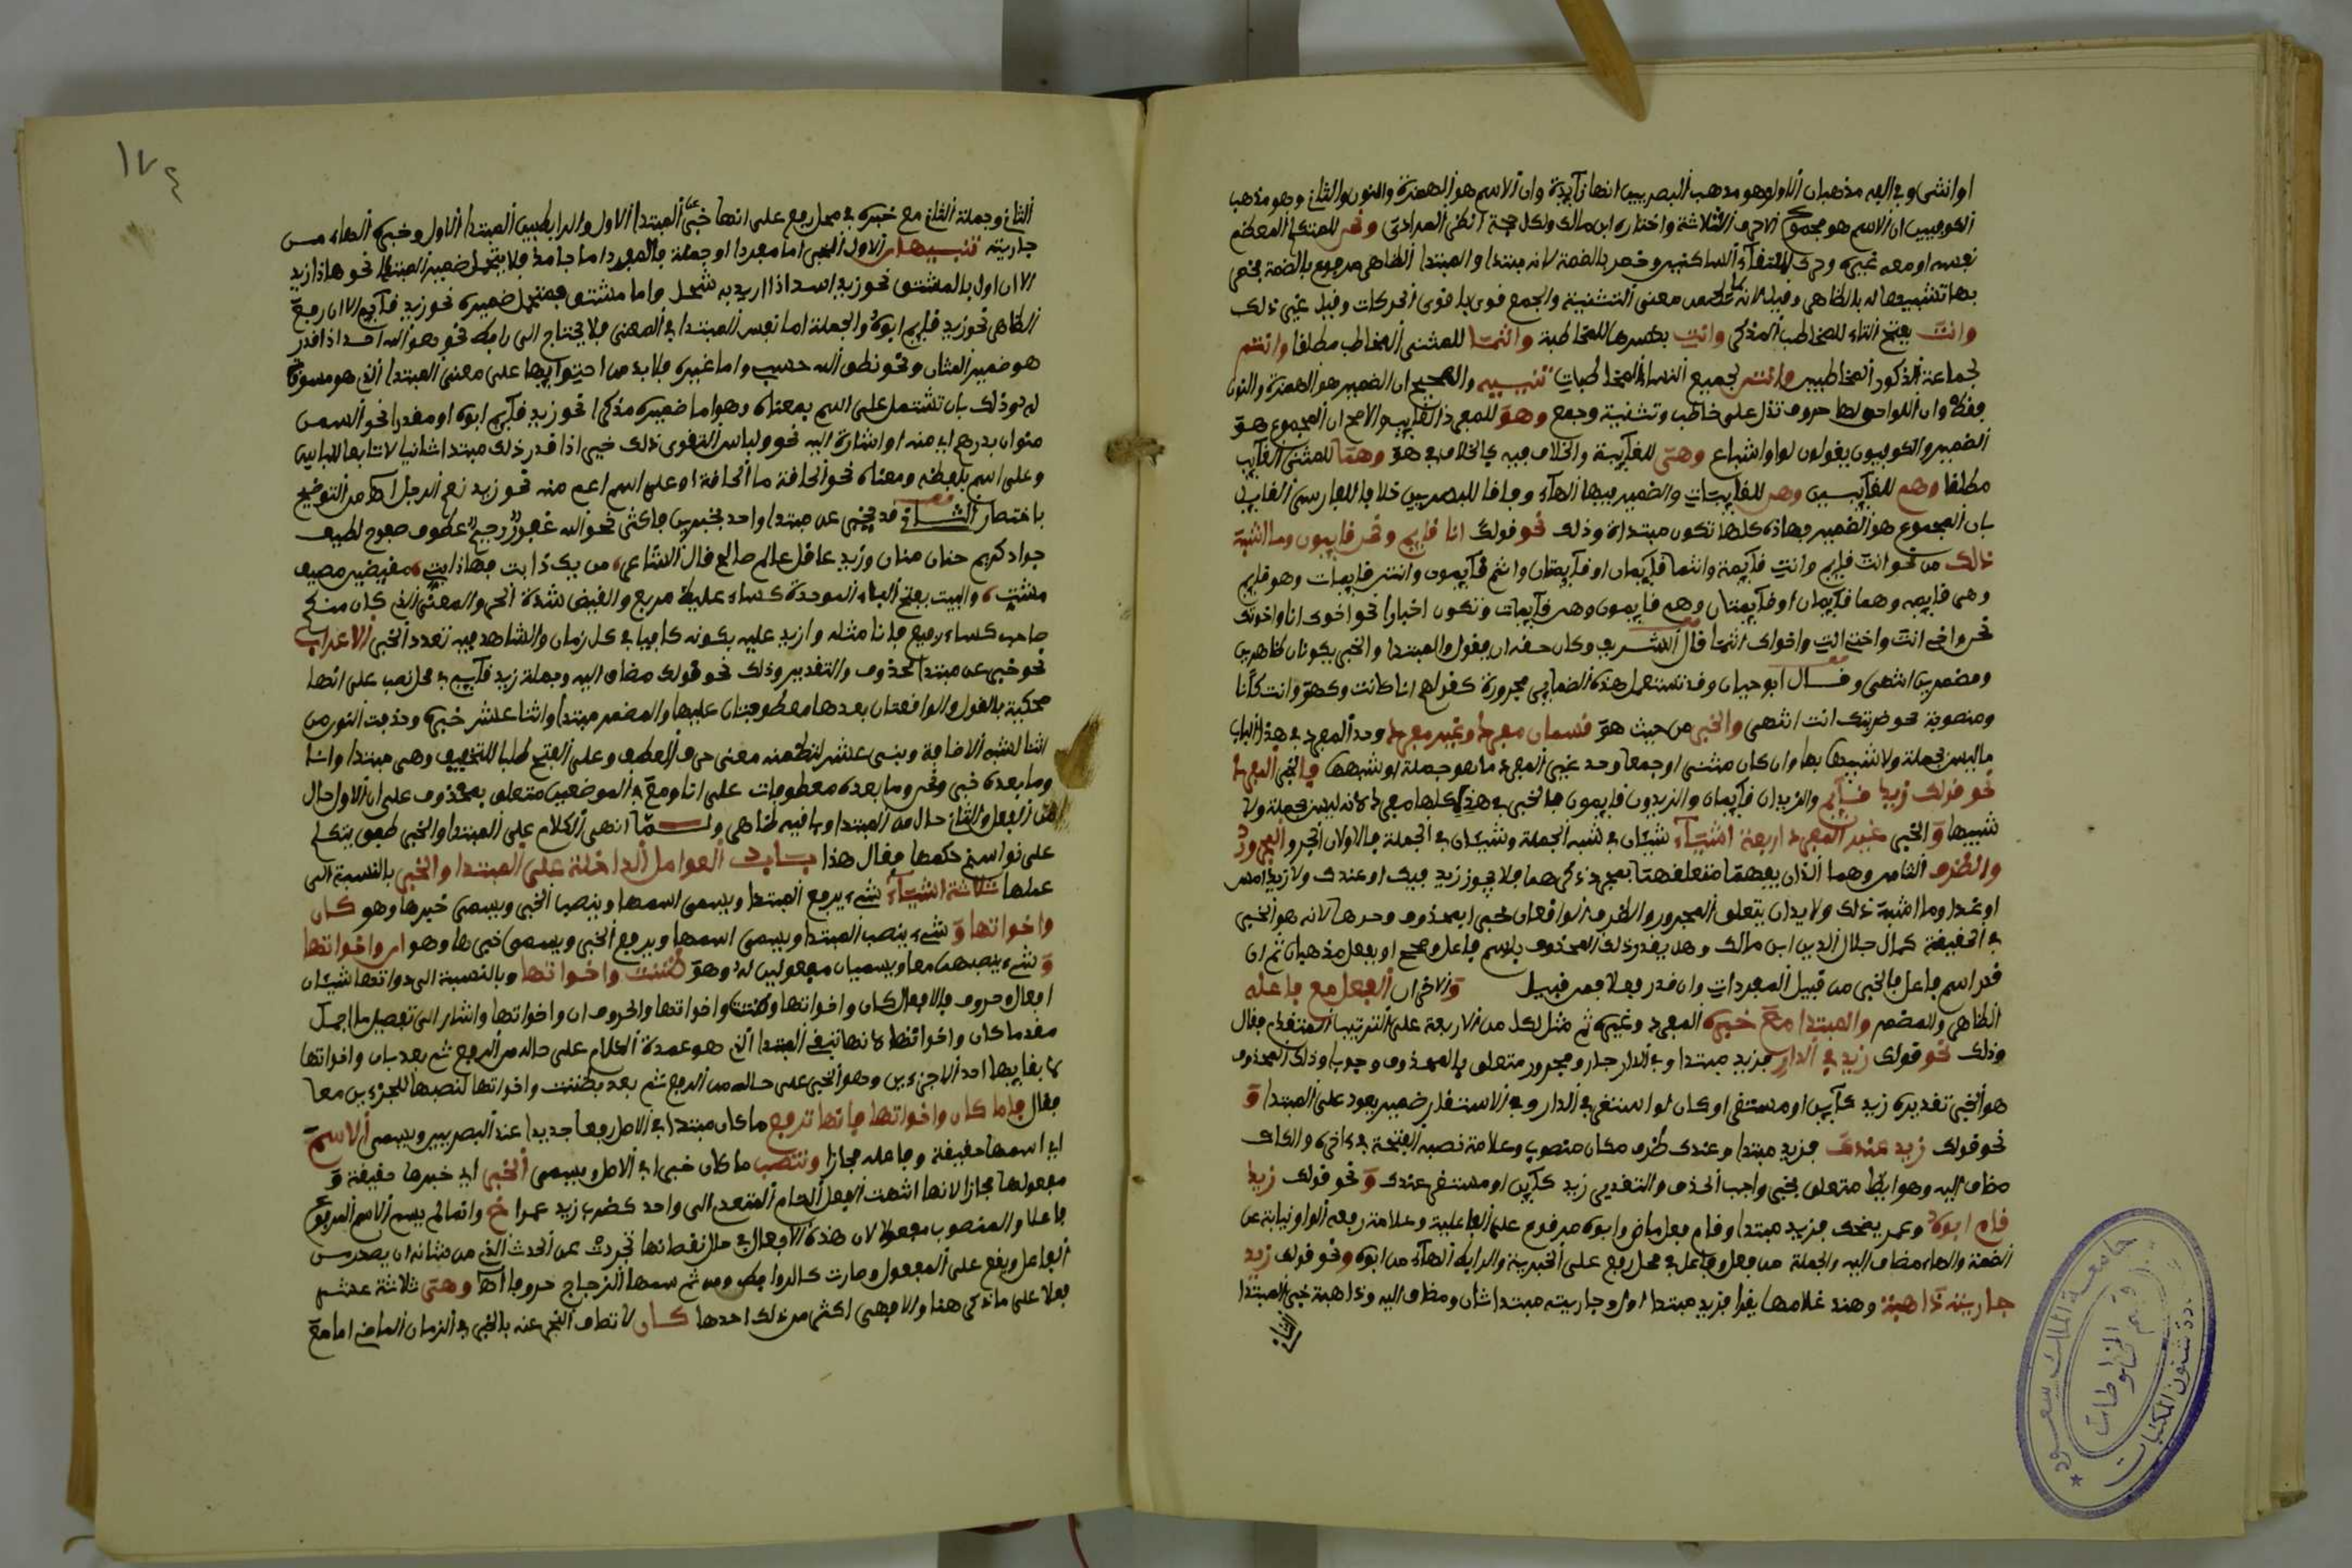 او انثى وفي الفه مذهبان الاول وهو مذهب البصريين انها زآيدة وان الاسم هو الهمزة والنون والثاني وهو مذهب
الكوفيين ان الاسم هو مجموع الاحرف الثلاثة واختاره ابن مالك ولكل حجة ونحن للمتكلم المعظم
نفسه او معه غيره وحرك لالتقاء الساكنين وخص بالضمة لانه مبتدا والمبتدا الظاهر مرفوع بالضمة
بها تشبيها له بالظاهر وقيل لانه لما تضمن معنى التثنية والجمع قوى باقوى الحركات وقيل غير ذلك
وانتَ بفتح التاء للمخاطب المذكر وانتِ بكسرها للمخاطبة وانتما للمثنى المخاطب مطلقا وانتم
لجماعة الذكور المخاطبين وانتن لجميع النساء المخاطبات تنبيه والصحيح ان الضمير هو الهمزة والنون
فقط وان اللواحق لها حروف تدل على خاطب وتثنية وجمع وهو للمفرد الغايب والاصح ان المجموع هو
الضمير والكوفيون يقولون الواو اشباع وهي للغآيبة والخلاف فيه كالخلاف في هو وهما للمثنى الغآيب
مطلقا وهم للغآيبين وهن للغايبات والضمير فيها الهآء وفاقا للبصريين خلافا للفارسي القايل
بان المجموع هو الضمير فهاذه كلها تكون مبتداة وذلك نحو قولك انا قايم ونحن قايمون وما اشبه
ذلك من نحو انت قايم وانتِ قآيمة وانتما قآيمان او قآيمتان وانتم قآيمون وانتن قايمات وهو قايم
وهي قايمه وهما قآيمان او قآيمتان وهم قايمون وهن قآيمات وتكون اخبارا نحو اخوى انا واخوتك
نحن واخي انت واختي انتِ واخواى انتما قال الشريف وكان حقه ان يقول والمبتدا والخبر يكونان ظاهرين
ومضمرين انتهى وقال ابو حيان وقد تستعمل هذه الضماير مجرورة كقولهم انا كانت وكهو وانت كأنا
ومنصوبة نحو ضربتك انت انتهى والخبر من حيث هو قسمان مفرد وغير مفرد وحد المفرد في هذا الباب
ما ليس بجملة ولا شبيها بها وان كان مثنى او جمعا وحد غير المفرد ما هو جملة او شبهها فالخبر المفرد
نحو قولك زيد قآيم والزيدان قآيمان والزيدون قايمون فالخبر في هذه كلها مفرد لانه ليس بجملة ولا
شبيها والخبر غير المفرد اربعة اشيآء شيئان في شبه الجملة وشيئان في الجملة فالاولان الجر والمجرور
والظرف التامين وهما اللذان يفهم متعلقهما بمجرد ذكرهما فلا يجوز زيد فيك او عندك ولا زيد امس
او غدا وما اشبه ذلك ولا بد ان يتعلق المجرور والظرف الواقعان خبرا بمحذوف وحدها لانه هو الخبر
في الحقيقة كما قال جلال الدين ابن مالك وهل يقدر ذلك المحذوف باسم فاعل وصحح او بفعل مذهبان ثم ان
قدر اسم فاعل فالخبر من قبيل المفردات وان قدر فعلا فمن قبيل والاخران الفعل مع فاعله
الظاهر والمضمر والمبتدا مع خبره المفرد وغيره ثم مثل لكل من الاربعة على الترتيب المتقدم فقال
وذلك نحو قولك زيد في الدار فزيد مبتدا وفي الدار جار ومجرور متعلق بالمحذوف وجوبا وذلك المحذوف
هو الخبر تقديره زيد كآين او مستقر او كان او استقر في الدار وفي الاستقرار ضمير يعود على المبتدا و
نحو قولك زيد عندك فزيد مبتدا وعندك ظرف مكان منصوب وعلامة نصبه الفتحة في ءاخره والكاف
مضاف اليه وهو ايضا متعلق بخبر واجب الحذف والتقدير زيد كآين او مستقر عندك ونحو قولك زيد
قام ابوه وعمر يضحك فزيد مبتدا وقام فعل ماض وابوه مرفوع على الفاعلية وعلامة رفعه الواو نيابة عن
الضمة والهاء مضاف اليه والجملة من فعل وفاعل في محل رفع على الخبرية والرابط الهآء من ابوه ونحو قولك زيد
جاريته ذاهبة وهند غلامها يقرا فزيد مبتدا اول وجاريته مبتدا ثان ومضاف اليه وذاهبة خبر المبتدا
الثاني
جامعة الملك سعود
قسم المخطوطات
شئون المكتبات
١٧٤
الثاني وجملة الثاني مع خبره في محل رفع على انها خبر عن المبتدا الاول والرابط بين المبتدا الاول وخبره الهاء من
جاريته تنبيهان الاول الخبر اما مفردا او جملة فالمفرد اما جامد فلا يتحمل ضمير المبتدا نحو هاذا زيد
الا ان اول بالمشتق نحو زيد اسد اذا اريد به شجاع واما مشتق فيتحمل ضميره نحو زيد قآيم الا ان رفع
الظاهر نحو زيد قايم ابوه والجملة اما نفس المبتدا في المعنى فلا يحتاج الى رابط نحو هو الله احد اذا قدر
هو ضمير الشان ونحو نطقي الله حسبي واما غيره فلا بد من احتوايها على معنى المبتدا الذي هو مسوق
له وذلك بان تشتمل على اسم بمعناه وهو اما ضميره مذكرا نحو زيد قآيم ابوه او مقدرا نحو السمن
منوان بدرهم اي منه او اشارة اليه نحو ولباس التقوى ذلك خير اذا قدر ذلك مبتدا ثانيا لا تابعا للباس
وعلى اسم بلفظه ومعناه نحو الحاقة ما الحاقة او على اسم اعم منه نحو زيد نعم الرجل اه من التوضيح
باختصار الثاني قد يخبر عن مبتدا واحد بخبرين فاكثر نحو الله غفور رحيم عطوف صفوح لطيف
جواد كريم حنان منان وزيد عاقل عالم صالح قال الشاعر من يك ذا بت فهاذا بتي مقيظ مصيف
مشتي والبت بفتح البآء الموحدة كساء غليظ مربع والقيض شدة الحر والمعنى الذي كان منكم
صاحب كساء رفيع فانا مثله وازيد عليه بكونه كافيا في كل زمان والشاهد فيه تعدد الخبر الاعراب
نحو خبر عن مبتدا محذوف والتقدير وذلك نحو قولك مضاف اليه وجملة زيد قآيم في محل نصب على انها
محكية بالقول والواقعتان بعدها معطوفتان عليها والمضمر مبتدا واثنا عشر خبره وحذفت النون من
اثنا لشبه الاضافة وبني عشر لتضمنه معنى حرف العطف وعلى الفتح طلبا للتخفيف وهي مبتدا وانا
وما بعده خبر ونحن وما بعده معطوفات على انا ومع في الموضعين متعلق بمحذوف على ان الاول حال
من الفعل والثاني حال من المبتدا وباقيه ظاهر ولما انهى الكلام على المبتدا والخبر طفق يتكلم
على نواسخ حكمها فقال هذا باب العوامل الداخلة على المبتدا والخبر بالنسبة الى
عملها ثلاثة اشيآء شيء يرفع المبتدا ويسمى اسمها وينصب الخبر ويسمى خبرها وهو كان
واخواتها و شيء ينصب المبتدا ويسمى اسمها ويرفع الخبر ويسمى خبرها وهو ان واخواتها
و شيء ينصبهما معا ويسميان مفعولين له وهو ظننت واخواتها وبالنسبة الى ذواتها شيئان
افعال وحروف فالافعال كان واخواتها وظننت واخواتها والحروف ان واخواتها واشار الى تفصيل ما اجمل
مقدما كان واخواتها لانها تبقي المبتدا الذي هو عمدة الكلام على حاله من الرفع ثم بعد بان واخواتها
لابقايها احد الاجزءين وهو الخبر على حاله من الرفع ثم بعد بظننت واخواتها لنصبها للجزءين معا
فقال فاما كان واخواتها فانها ترفع ما كان مبتدا في الاصل رفعا جديدا عند البصريين ويسمى الاسم
اي اسمها حقيقة وفاعله مجازا وتنصب ما كان خبرا في الاصل ويسمى الخبر اي خبرها حقيقة و
مفعولها مجازا لانها اشبهت الفعل التام المتعدي الى واحد كضرب زيد عمرا وانما لم يسم الاسم المرفوع
فاعلا والمنصوب مفعولا لان هذه الافعال في حال نقصانها تجردت عن الحدث الذي من شانه ان يصدر من
الفاعل ويقع على المفعول وصارت كالروابط ومن ثم سماها الزجاج حروفا اه وهي ثلاثة عشر
فعلا على ما ذكر هنا والا فهي اكثر من ذلك احدها كان لاتصاف المخبر عنه بالخبر في الزمان الماضي اما مع